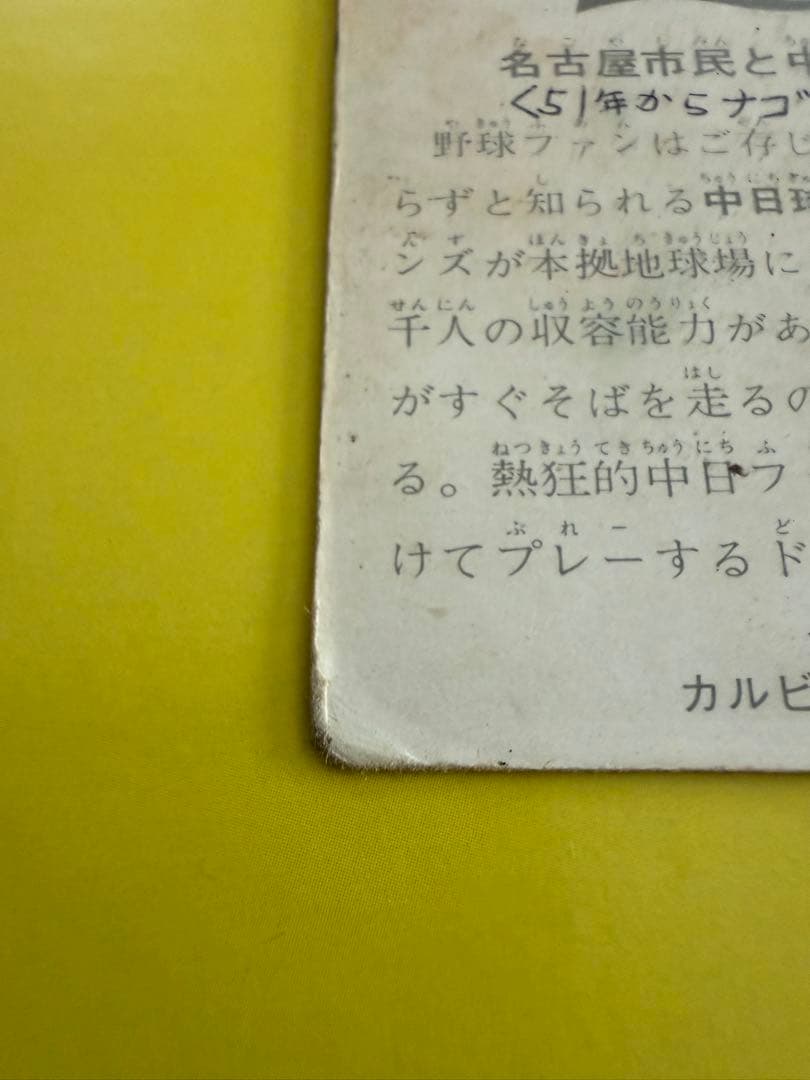 名古屋市民と中
<51年からナゴ
野球ファンはご存じ
らずと知られる中日球
ンズが本拠地球場に
千人の収容能力があ
がすぐそばを走るの
る。熱狂的中日フ
けてプレーするド
カルビ